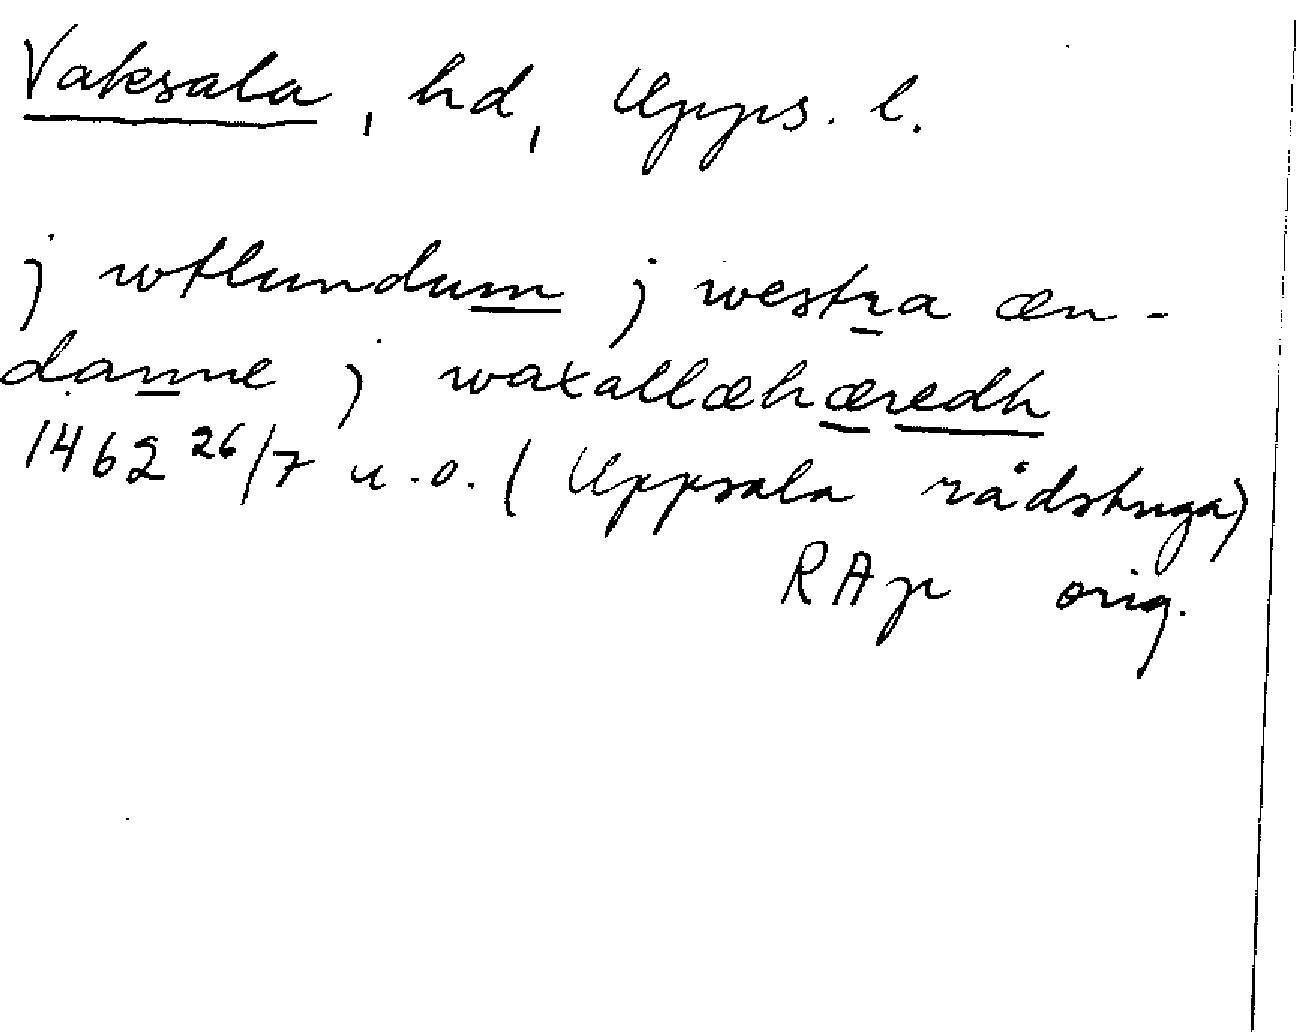 Vaksala, hd, Upps. l.
j wtlundum j westra æn-
danne j waxallæhæredh
1462 26/7 u.o. (Uppsala rådstuga)
RAp orig.